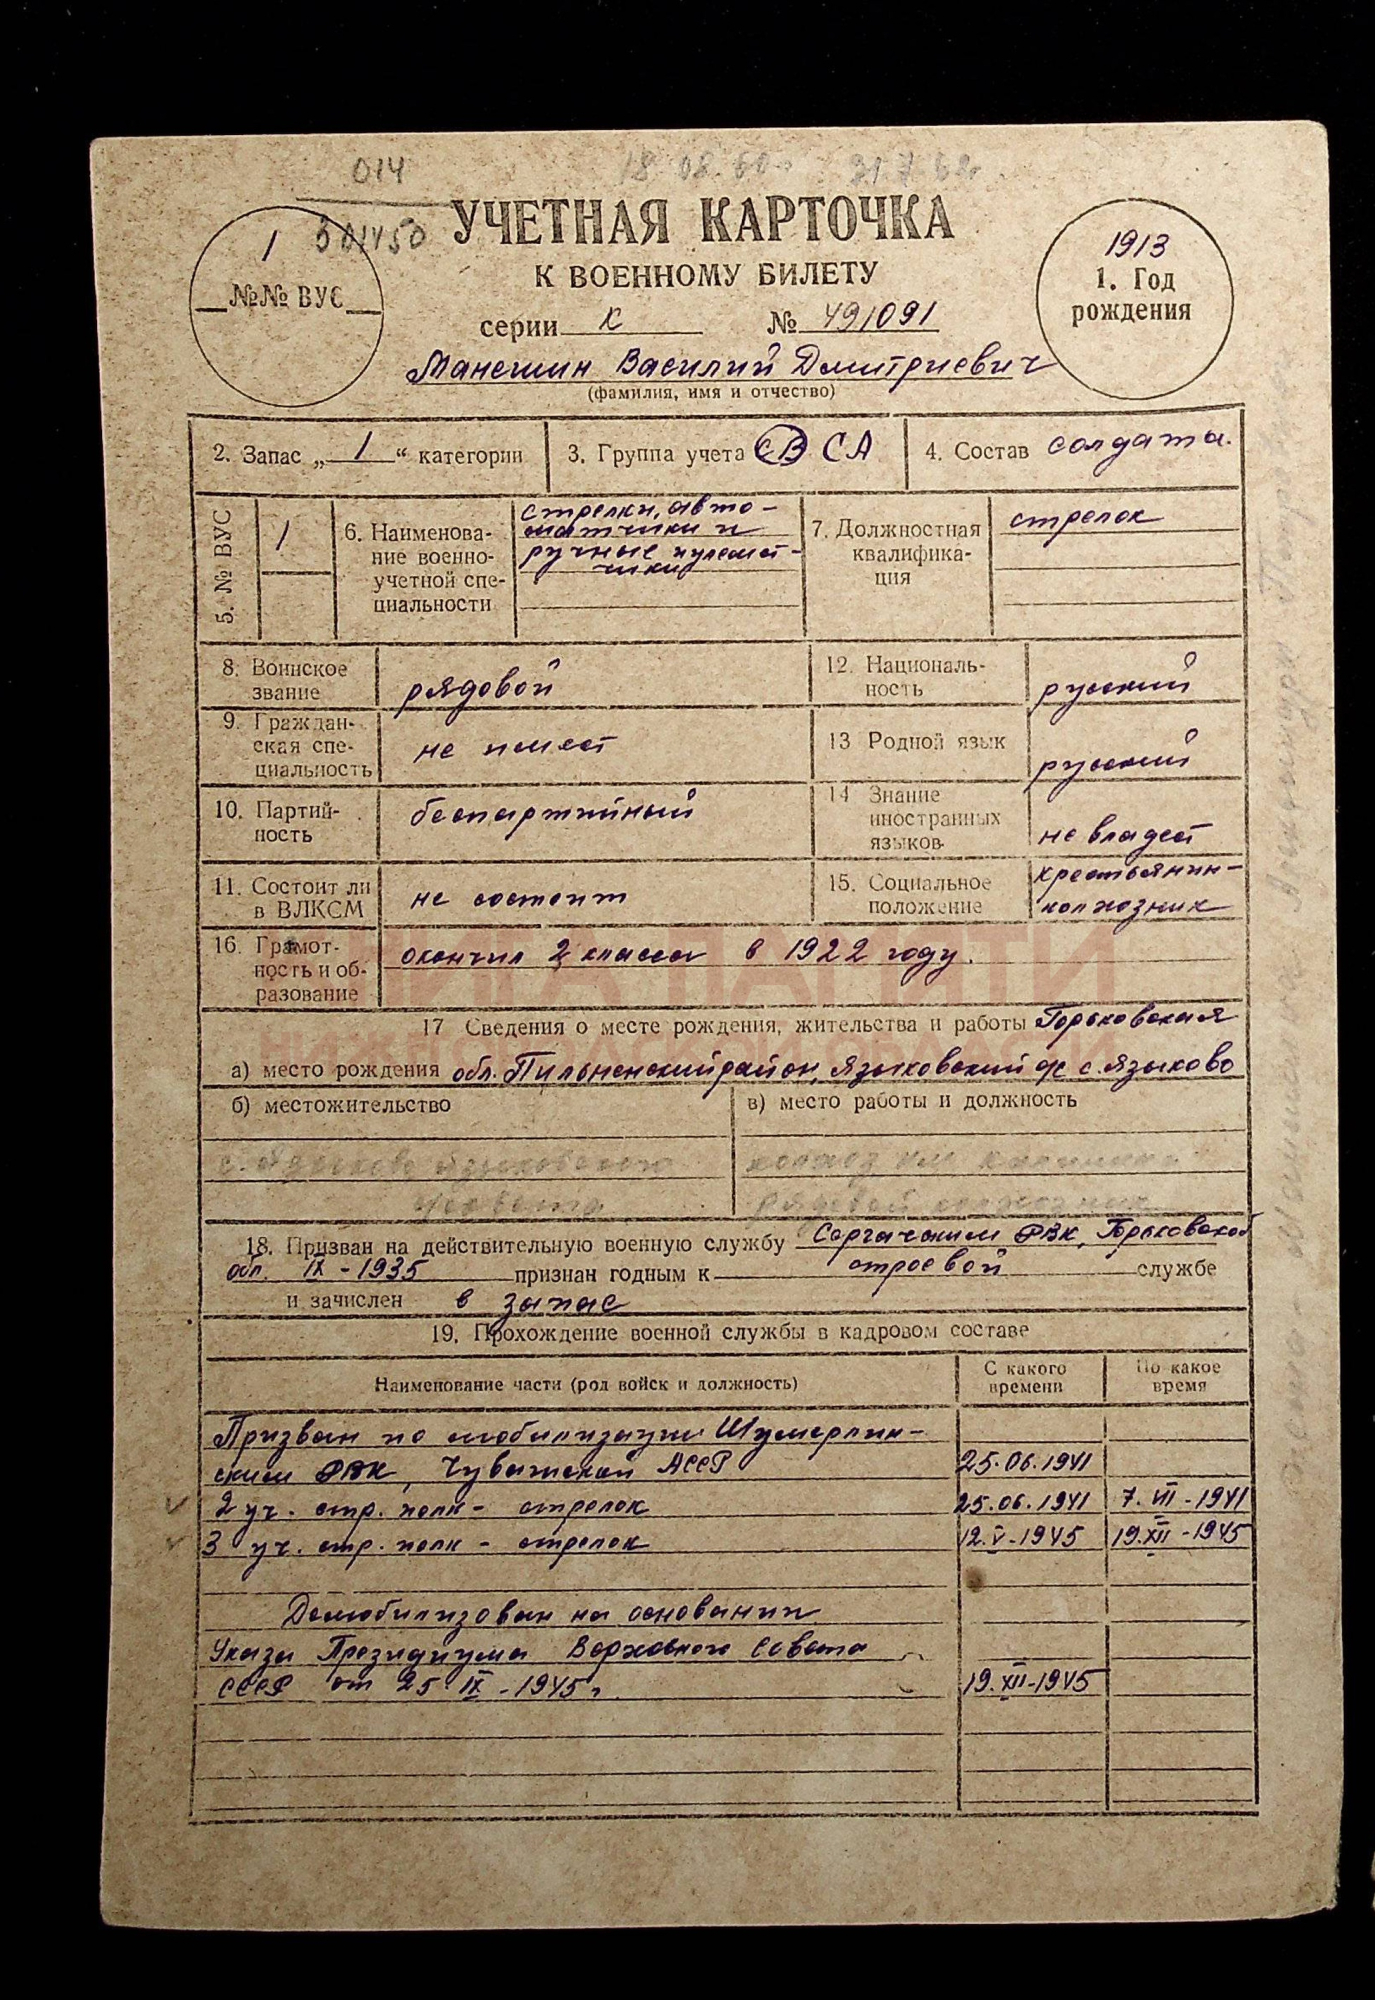 014
18.08.60г. 31.7.62г.
501450
УЧЕТНАЯ КАРТОЧКА
К ВОЕННОМУ БИЛЕТУ
1
№№ ВУС
1913
1. Год
рождения
серии К № 491091
Манешин Василий Дмитриевич
(фамилия, имя и отчество)
2. Запас „ 1 “ категории
3. Группа учета СВ СА
4. Состав солдаты.
5. № ВУС
1
6. Наименова-
ние военно-
учетной спе-
циальности
стрелки, авто-
матчики и
ручные пулемет-
чики
7. Должностная
квалифика-
ция
стрелок
8. Воинское
звание
рядовой
12. Националь-
ность
русский
9. Граждан-
ская спе-
циальность
не имеет
13 Родной язык
русский
10. Партий-
ность
беспартийный
14 Знание
иностранных
языков
не владеет
11. Состоит ли
в ВЛКСМ
не состоит
15. Социальное
положение
крестьянин-
колхозник
16. Грамот-
ность и об-
разование
окончил 2 класса в 1922 году.
КНИГА ПАМЯТИ
НИЖЕГОРОДСКОЙ ОБЛАСТИ
17 Сведения о месте рождения, жительства и работы Горьковская
а) место рождения обл. Пильненский район, Языковский с/с с. Языково
б) местожительство
в) место работы и должность
с. Языково Языковского
Совета
колхоз им Калинина
рядовой колхозник
18. Призван на действительную военную службу Сергачским РВК, Горьковской
обл. IX - 1935 признан годным к строевой службе
и зачислен в запас
19. Прохождение военной службы в кадровом составе
Наименование части (род войск и должность)
С какого
времени
По какое
время
Призван по мобилизации Шумерлин-
ским РВК, Чувашской АССР 25.06.1941
2 уч. стр. полк - стрелок 25.06.1941 7. VII - 1941
3 уч. стр. полк - стрелок 12. V - 1945 19. XII - 1945
Демобилизован на основании
Указа Президиума Верховного Совета
СССР от 25 IX - 1945 г. 19. XII - 1945